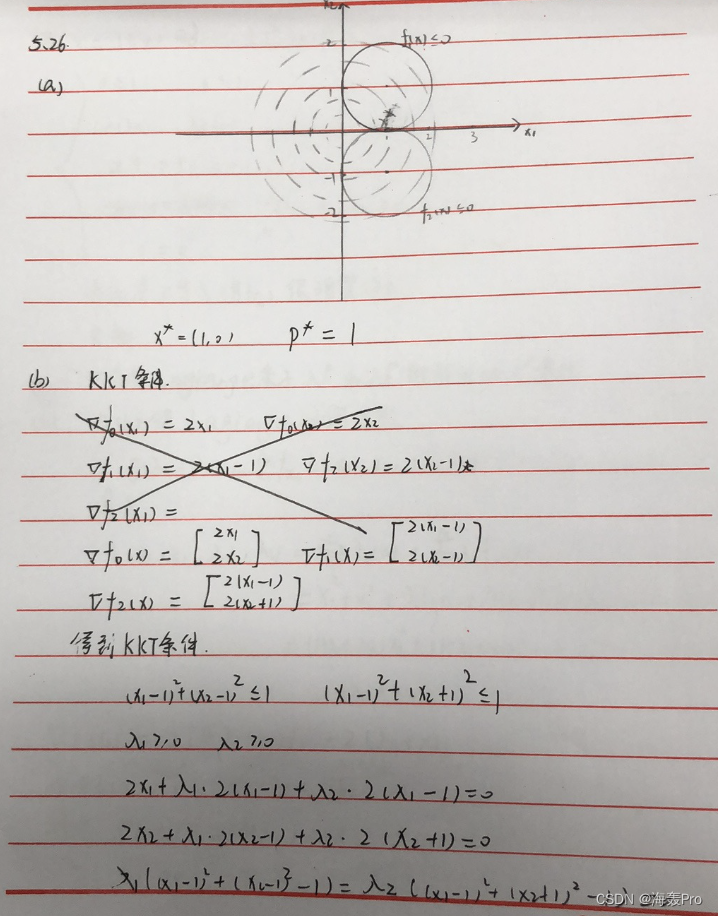 x₂
5.26.
(a)
2
f₁(x) ≤ 0
2
3
x₁
-1
-2
f₂(x) ≤ 0
x* = (1,0) p* = 1
(b) KKT条件.
∇f₀(x₁) = 2x₁ ∇f₀(x₂) = 2x₂
∇f₁(x₁) = 2(x₁-1) ∇f₂(x₂) = 2(x₂-1)
∇f₂(x₁) =
∇f₀(x) = [2x₁ 2x₂] ∇f₁(x) = [2(x₁-1) 2(x₂-1)]
∇f₂(x) = [2(x₁-1) 2(x₂+1)]
得到KKT条件.
(x₁-1)²+(x₂-1)² ≤ 1 (x₁-1)²+(x₂+1)² ≤ 1
λ₁ ≥ 0 λ₂ ≥ 0
2x₁ + λ₁·2(x₁-1) + λ₂·2(x₁-1) = 0
2x₂ + λ₁·2(x₂-1) + λ₂·2(x₂+1) = 0
λ₁((x₁-1)²+(x₂-1)²-1) = λ₂((x₁-1)²+(x₂+1)²-1) =
CSDN @海轰Pro